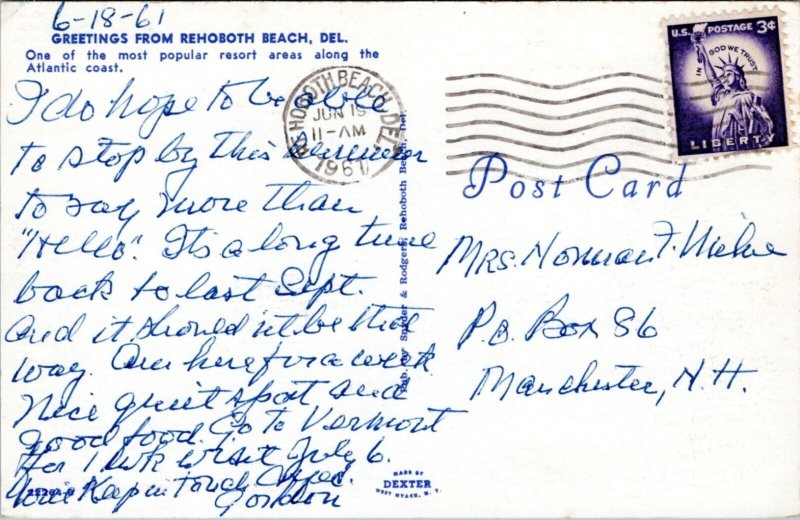 6-18-61
GREETINGS FROM REHOBOTH BEACH, DEL.
One of the most popular resort areas along the
Atlantic coast.
I do hope to be able
to stop by this summer
to say more than
"Hello". It's a long time
back to last Sept.
and it should n't be that
way. Am here for a week
Nice quiet spot and
good food. Go to Vermont
for 1 wk visit July 6.
Keep in touch
Gordon
REHOBOTH BEACH, DEL.
JUN 19
11-AM
1961
U.S. POSTAGE 3¢
IN GOD WE TRUST
LIBERTY
Post Card
Mrs. Norman F.
P.O. Box 86
Manchester, N.H.
Pub. by Snyder & Rodgers, Rehoboth Beach, Del.
MADE BY
DEXTER
WEST NYACK, N.Y.